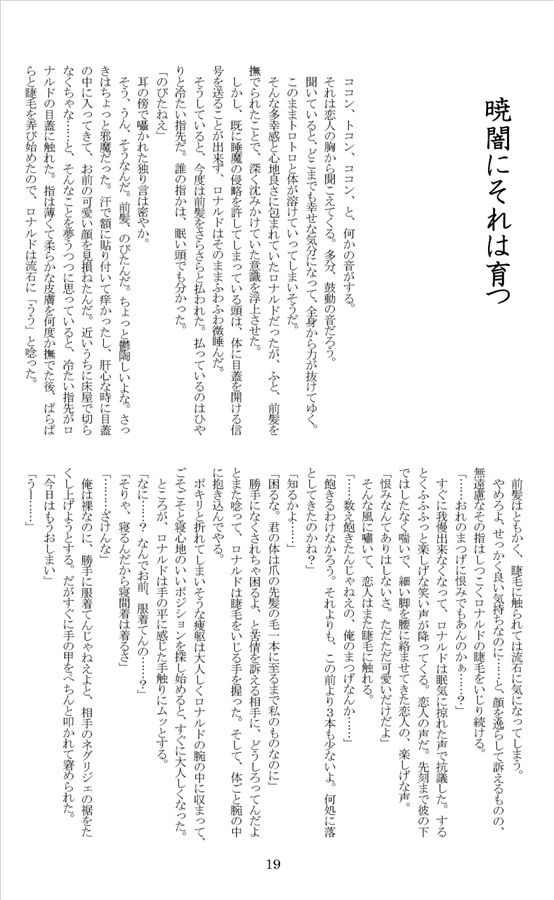 暁闇にそれは育つ
ココン、トコン、ココン、と、何かの音がする。
それは恋人の胸から聞こえてくる。多分、鼓動の音だろう。
聞いていると、どこまでも幸せな気分になって、全身から力が抜けてゆく。
このままトロトロと体が溶けていってしまいそうだ。
そんな多幸感と心地良さに包まれていたロナルドだったが、ふと、前髪を
撫でられたことで、深く沈みかけていた意識を浮上させた。
しかし、既に睡魔の侵略を許してしまっている頭は、体に目蓋を開ける信
号を送ることが出来ず、ロナルドはそのままふわふわ微睡んだ。
そうしていると、今度は前髪をさらさらと払われた。払っているのはひや
りと冷たい指先だ。誰の指かは、眠い頭でも分かった。
「のびたねえ」
耳の傍で囁かれた独り言は密やか。
そう、うん、そうなんだ。前髪、のびたんだ。ちょっと鬱陶しいよな。さっ
きはちょっと邪魔だった。汗で額に貼り付いて痒かったし、肝心な時に目蓋
の中に入ってきて、お前の可愛い顔を見損ねたんだ。近いうちに床屋で切ら
なくちゃな……と、そんなことを夢うつつに思っていると、冷たい指先がロ
ナルドの目蓋に触れた。指は薄くて柔らかな皮膚を何度か撫でた後、ぱらぱ
らと睫毛を弄び始めたので、ロナルドは流石に「うう」と唸った。
前髪はともかく、睫毛に触られては流石に気になってしまう。
やめろよ、せっかく良い気持ちなのに……と、顔を逸らして訴えるものの、
無遠慮なその指はしつこくロナルドの睫毛をいじり続ける。
「……おれのまつげに恨みでもあんのかぁ……？」
すぐに我慢出来なくなって、ロナルドは眠気に掠れた声で抗議した。する
とくふふふっと楽しげな笑い声が降ってくる。恋人の声だ。先刻まで彼の下
ではしたなく喘いで、細い脚を腰に絡ませてきた恋人の、楽しげな声。
「恨みなんてありはしないさ。ただただ可愛いだけだよ」
そんな風に嘯いて、恋人はまた睫毛に触れる。
「……数え飽きたんじゃねえの、俺のまつげなんか……」
「飽きるわけなかろう。それよりも、この前より３本も少ないよ。何処に落
としてきたのかね？」
「知るかよ……」
「困るな。君の体は爪の先髪の毛一本に至るまで私のものなのに」
勝手になくされちゃ困るよ、と苦情を訴える相手に、どうしろってんだよ
とまた唸って、ロナルドは睫毛をいじる手を握った。そして、体ごと腕の中
に抱き込んでやる。
ポキリと折れてしまいそうな痩躯は大人しくロナルドの腕の中に収まって、
ごそごそと寝心地のいいポジションを探し始めると、すぐに大人しくなった。
ところが、ロナルドは手の平に感じた手触りにムッとする。
「なに……？ なんでお前、服着てんの……？」
「そりゃ、寝るんだから寝間着は着るさ」
「………ざけんな」
俺は裸なのに、勝手に服着てんじゃねえよと、相手のネグリジェの裾をた
くし上げようとする。だがすぐに手の甲をぺちんと叩かれて窘められた。
「今日はもうおしまい」
「うー……」
19